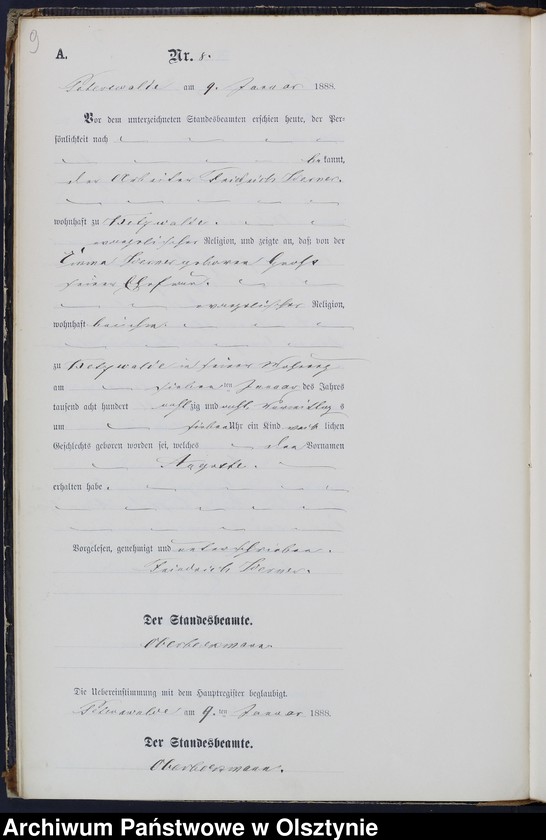 9
A.
Nr. 8.
am 9. Januar 1888.
Vor dem unterzeichneten Standesbeamten erschien heute, der Per-
sönlichkeit nach
bekannt,
der Arbeiter Friedrich
wohnhaft zu
evangelischer Religion, und zeigte an, daß von der
Emma geboren
seiner Ehefrau
evangelischer Religion,
wohnhaft bei ihm
zu in seiner Wohnung
am sieben ten Januar des Jahres
tausend acht hundert achtzig und acht Vormittags
um sieben Uhr ein Kind weiblichen
Geschlechts geboren worden sei, welches den Vornamen
Auguste.
erhalten habe.
Vorgelesen, genehmigt und unterschrieben.
Friedrich
Der Standesbeamte.
Die Uebereinstimmung mit dem Hauptregister beglaubigt.
am 9. ten Januar 1888.
Der Standesbeamte.
Archiwum Państwowe w Olsztynie